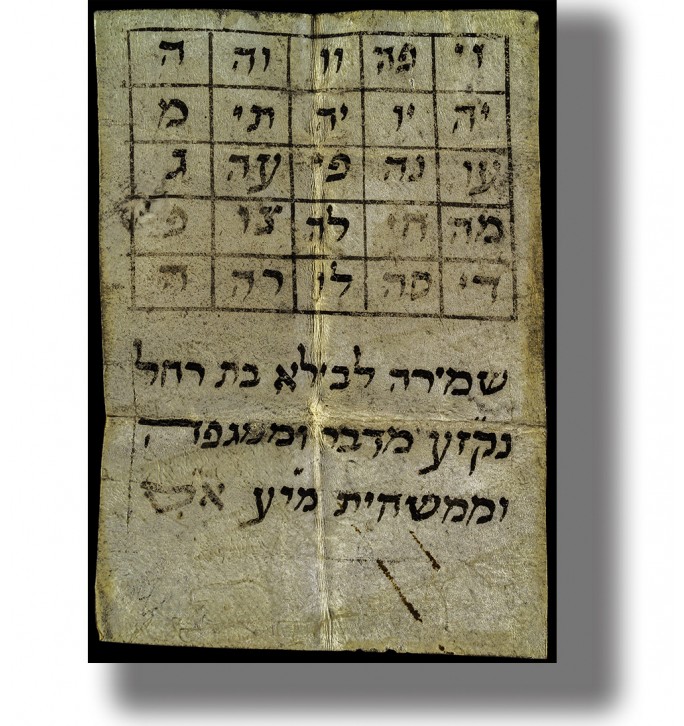 וי פה וו וה ה
יה יו יה תי מ
עו נה פי עה ג
מה חי לה צו פ
די סה לו רה ה
שמירה לבילא בת רחל
נקזע מדבר וממגפה
וממשחית מי"ע